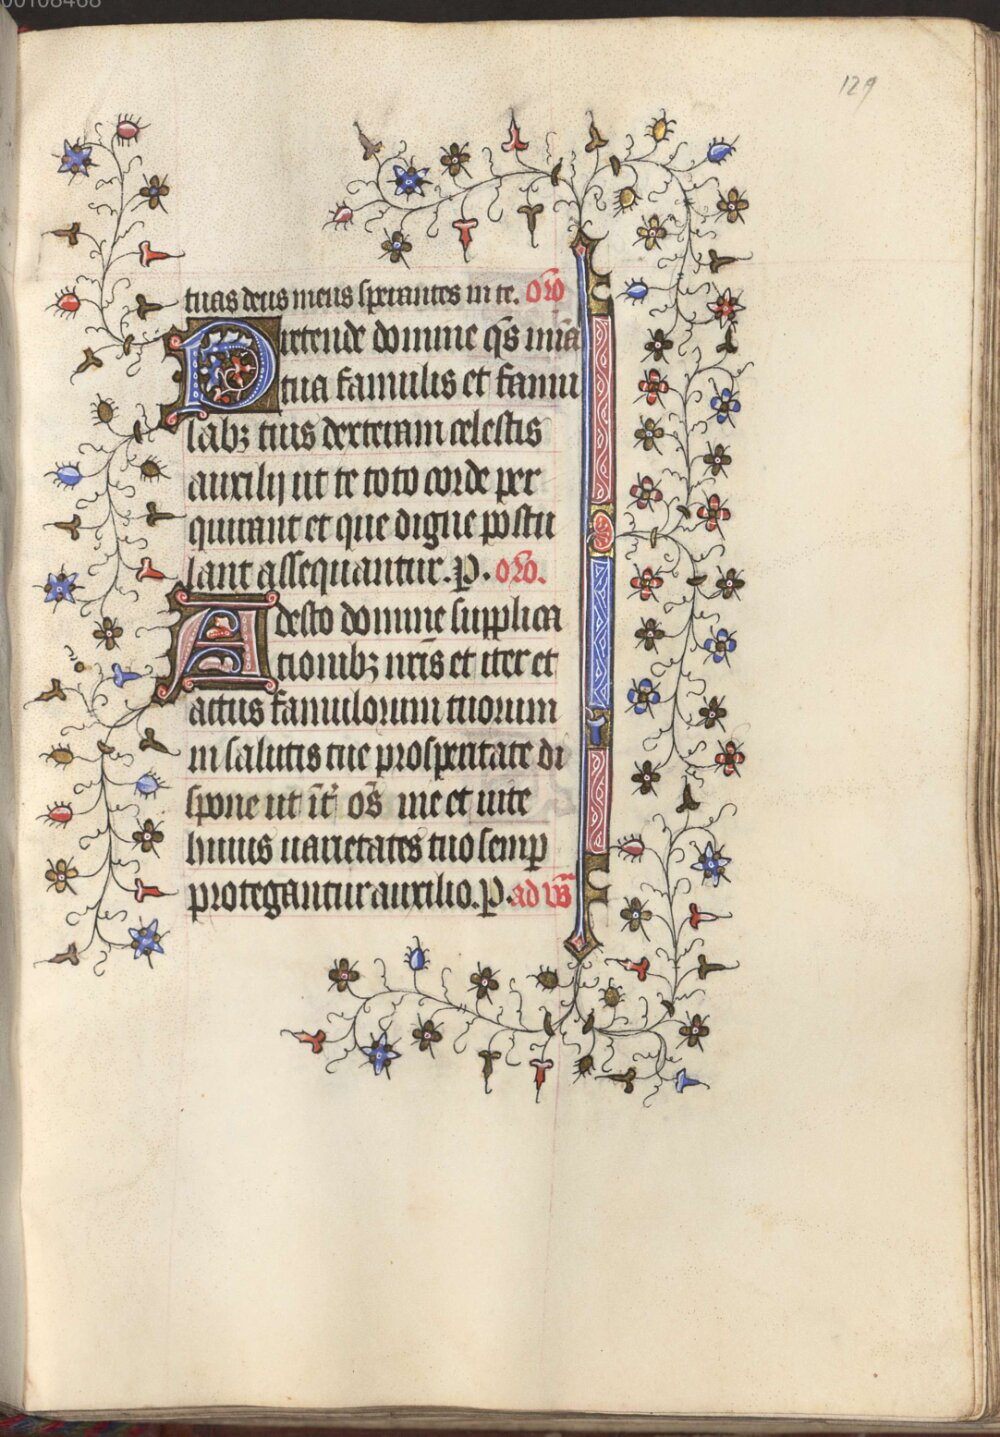 00108468
129
tuas deus meus sperantes in te. oro̅
Pretende domine q̅s mi̅a̅
tua famulis et famu
labꝫ tuis dexteram celestis
auxilij ut te toto corde per
quirant et que digne postu
lant assequantur. P. oro̅.
Adesto domine supplica
tionibꝫ nr̅is et iter et
actus famulorum tuorum
in salutis tue prosperitate di
spone ut i̅t̅ o̅s uie et uite
huius uarietates tuo semꝑ
protegantur auxilio. P. ad vs̅